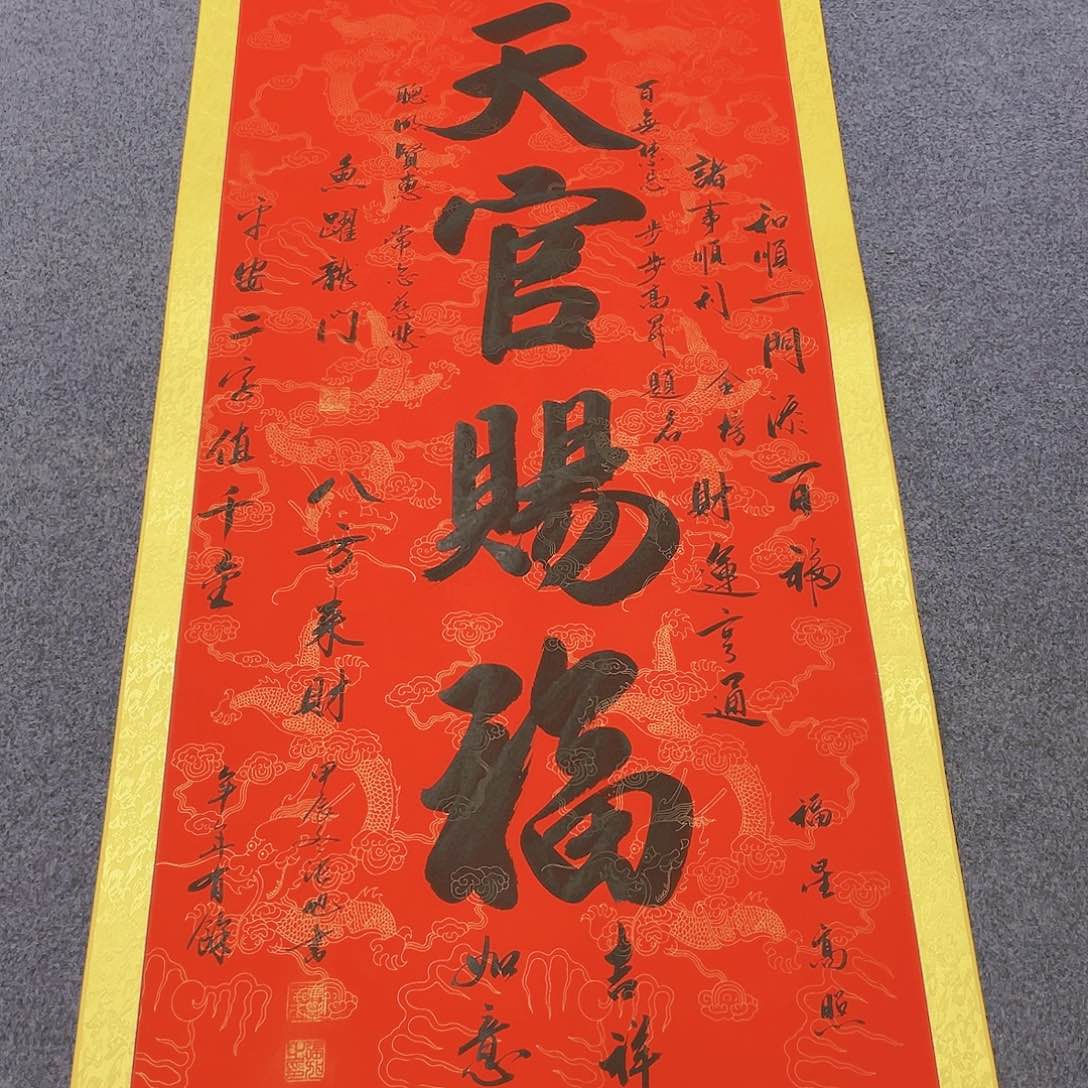 和順一門添百福
福星高照
諸事順利
金榜題名
財運亨通
百無禁忌
步步高昇
天官賜福
吉祥如意
聰明賢惠
常念慈悲
魚躍龍門
八方來財
甲辰
書
平安二字值千金
年年有餘